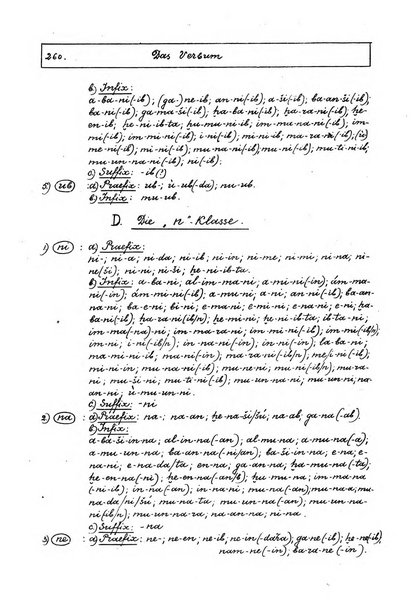 260. Das Verbum
b) Infix:
a-ba-ni(-ib); (ga-)ne-ib; an-ni(-ib); a-ši(-ib); ba-an-ši(-ib)
ba-ni(-ib);
en-ib; ḫe-ni-ib-ta; ḫu-mu-ni-ib; im-ma-ni(-ib);
im-mi(-ib); i-ni(-ib); mi-ni-ib; ma-ra-ni(-ib);
me-ni(-ib); mi-ni(-ib); mu-na-ni(-ib) mu-ni(-ib); mu-ti-ni-ib;
mu-un-na-ni(-ib); ni(-ib).
c) Suffix: -ib(!)
5) ub : a) Praefix: ub-; ù-ub(-da); nu-ub.
b) Infix: mu-ub.
D. Die „n"-Klasse.
1) ni : a) Praefix:
ni-; ni-a; ni-da; ni-ib; ni-in; ni-me; ni-mi; ni-na; ni-
ne(ši); ni-ni; ni-ši; ḫe-ni-ib-ta.
b) Infix: a-ba-ni; al-im-ma-ni; a-mi-ni(-in);
ni(-in); a-mi-ni(-ib); a-mu-ni; a-ni; an-ni(-ib); ba-an-
na-ni; ba-e-ni; bi-ni; e-ma-ni; e-na-ni; e-ni; ḫa-
ba-ni(-ib); ḫu-ba-ni(/in); ḫe-mi-ni; ḫe-ni-ib-ta; ib-ta-ni;
im-ma(-na)-ni; im-ma-ra-ni; im-mi-ni(-ib);
im-ni; i-ni(-ib/n); in-na-ni(-in); in-ni(-in); la-ba-ni;
ma-mi-ni-ib; ma-ni(-in); ma-ra-ni(-ib/n); me/i-ni(-ib);
mi-ni-in; mu-na-ni(-ib); mu-ne-ni; mu-ni(-ib/n); mu-ra-
ni; mu-ši-ni; mu-ti-ni(-ib); mu-un-na-ni; mu-un-ni; nu-
an-ni; ù-mu-un-ni.
c) Suffix: -ni
2) na : a) Praefix: na-; na-an; ḫe-na-ši/šú; na-ab; ga-na(-ab)
b) Infix:
a-ba-ši-in-na; al-in-na(-an); al-mu-na; a-mu-na(-a);
a-mu-un-na; ba-an-na(-ni/an); ba-ši-in-na; e-na; e-
na-ni; e-na-da/ta; en-na; ga-an-na; ḫa-mu-na(-ta);
ḫe-en-na(-ni); ḫe-en-na(-an/b); ḫu-mu-na; im-ma-na
(-ni-ib); in-na(-an); in-na-ni; mu-na(-an); mu-na-a; mu-
na-da/ni/šú; mu-na-ta; mu-un-na(-an); mu-un-
na-ni(-ib); mu-un-na-ra; na-an-na; šu-in-na.
c) Suffix: -na
3) ne : a) Praefix: ne-; ne-en; ne-ib; ne-in(-dara) ga-ne(-ib);
nam-ne(-in); ba-ra-ne(-in).